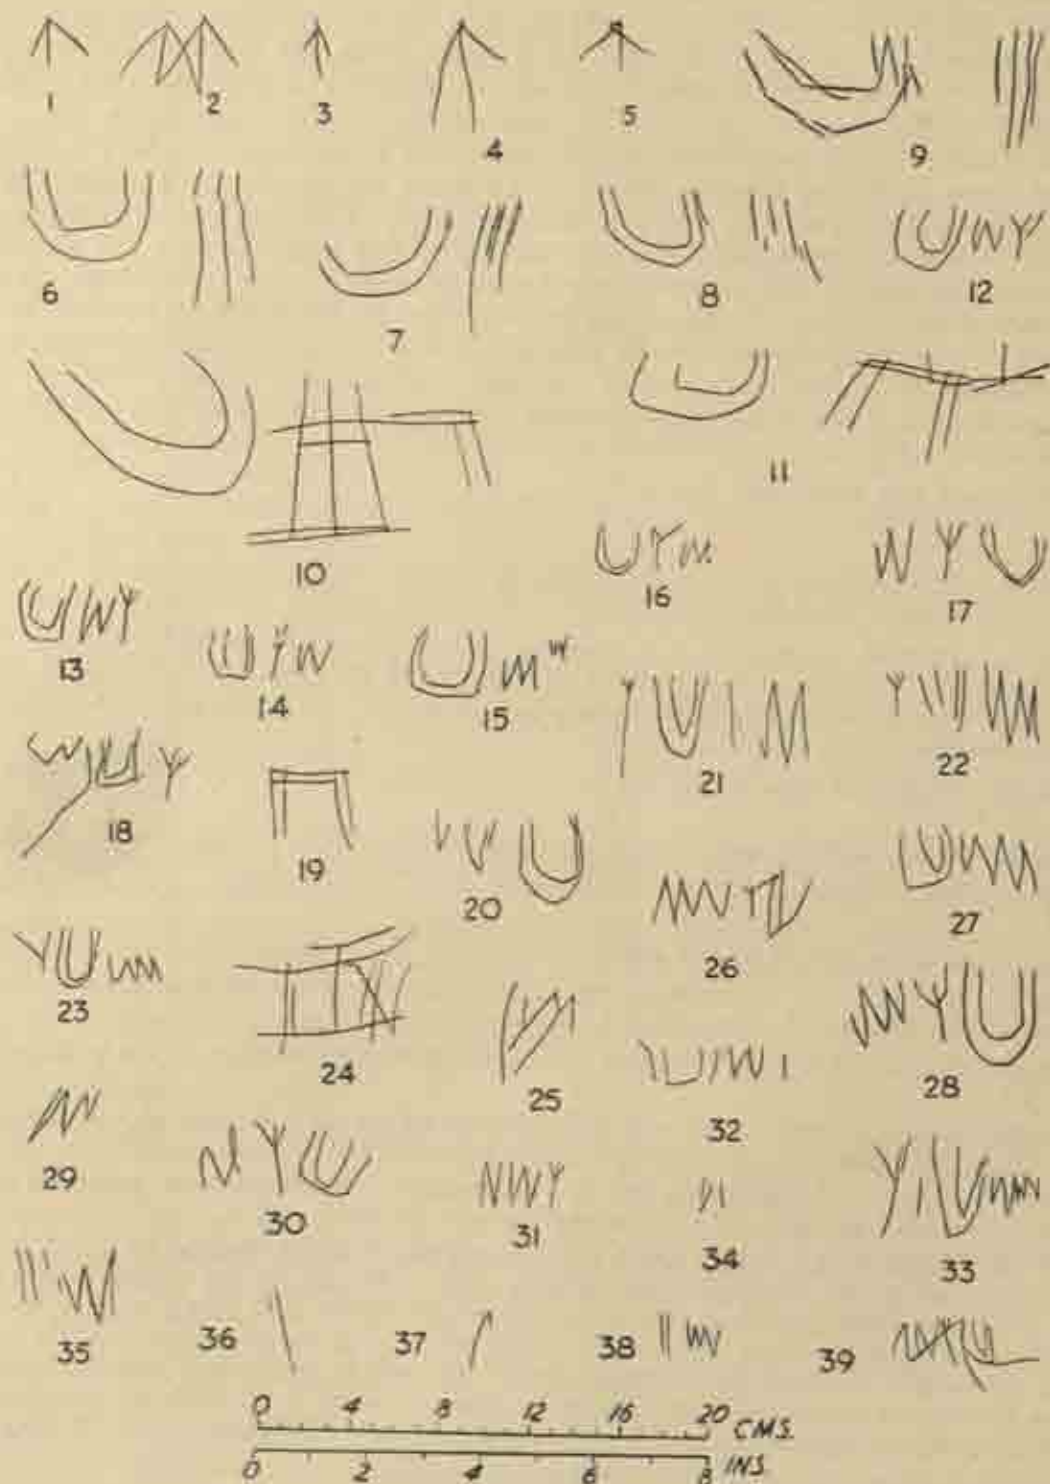 1 2 3 4 5 9
6 7 8 12
10 11
13 14 15 16 17
18 19 20 21 22
23 24 25 26 27
28
29 30 31 32 33
34
35 36 37 38 39
0 4 8 12 16 20 CMS.
0 2 4 6 8 INS.